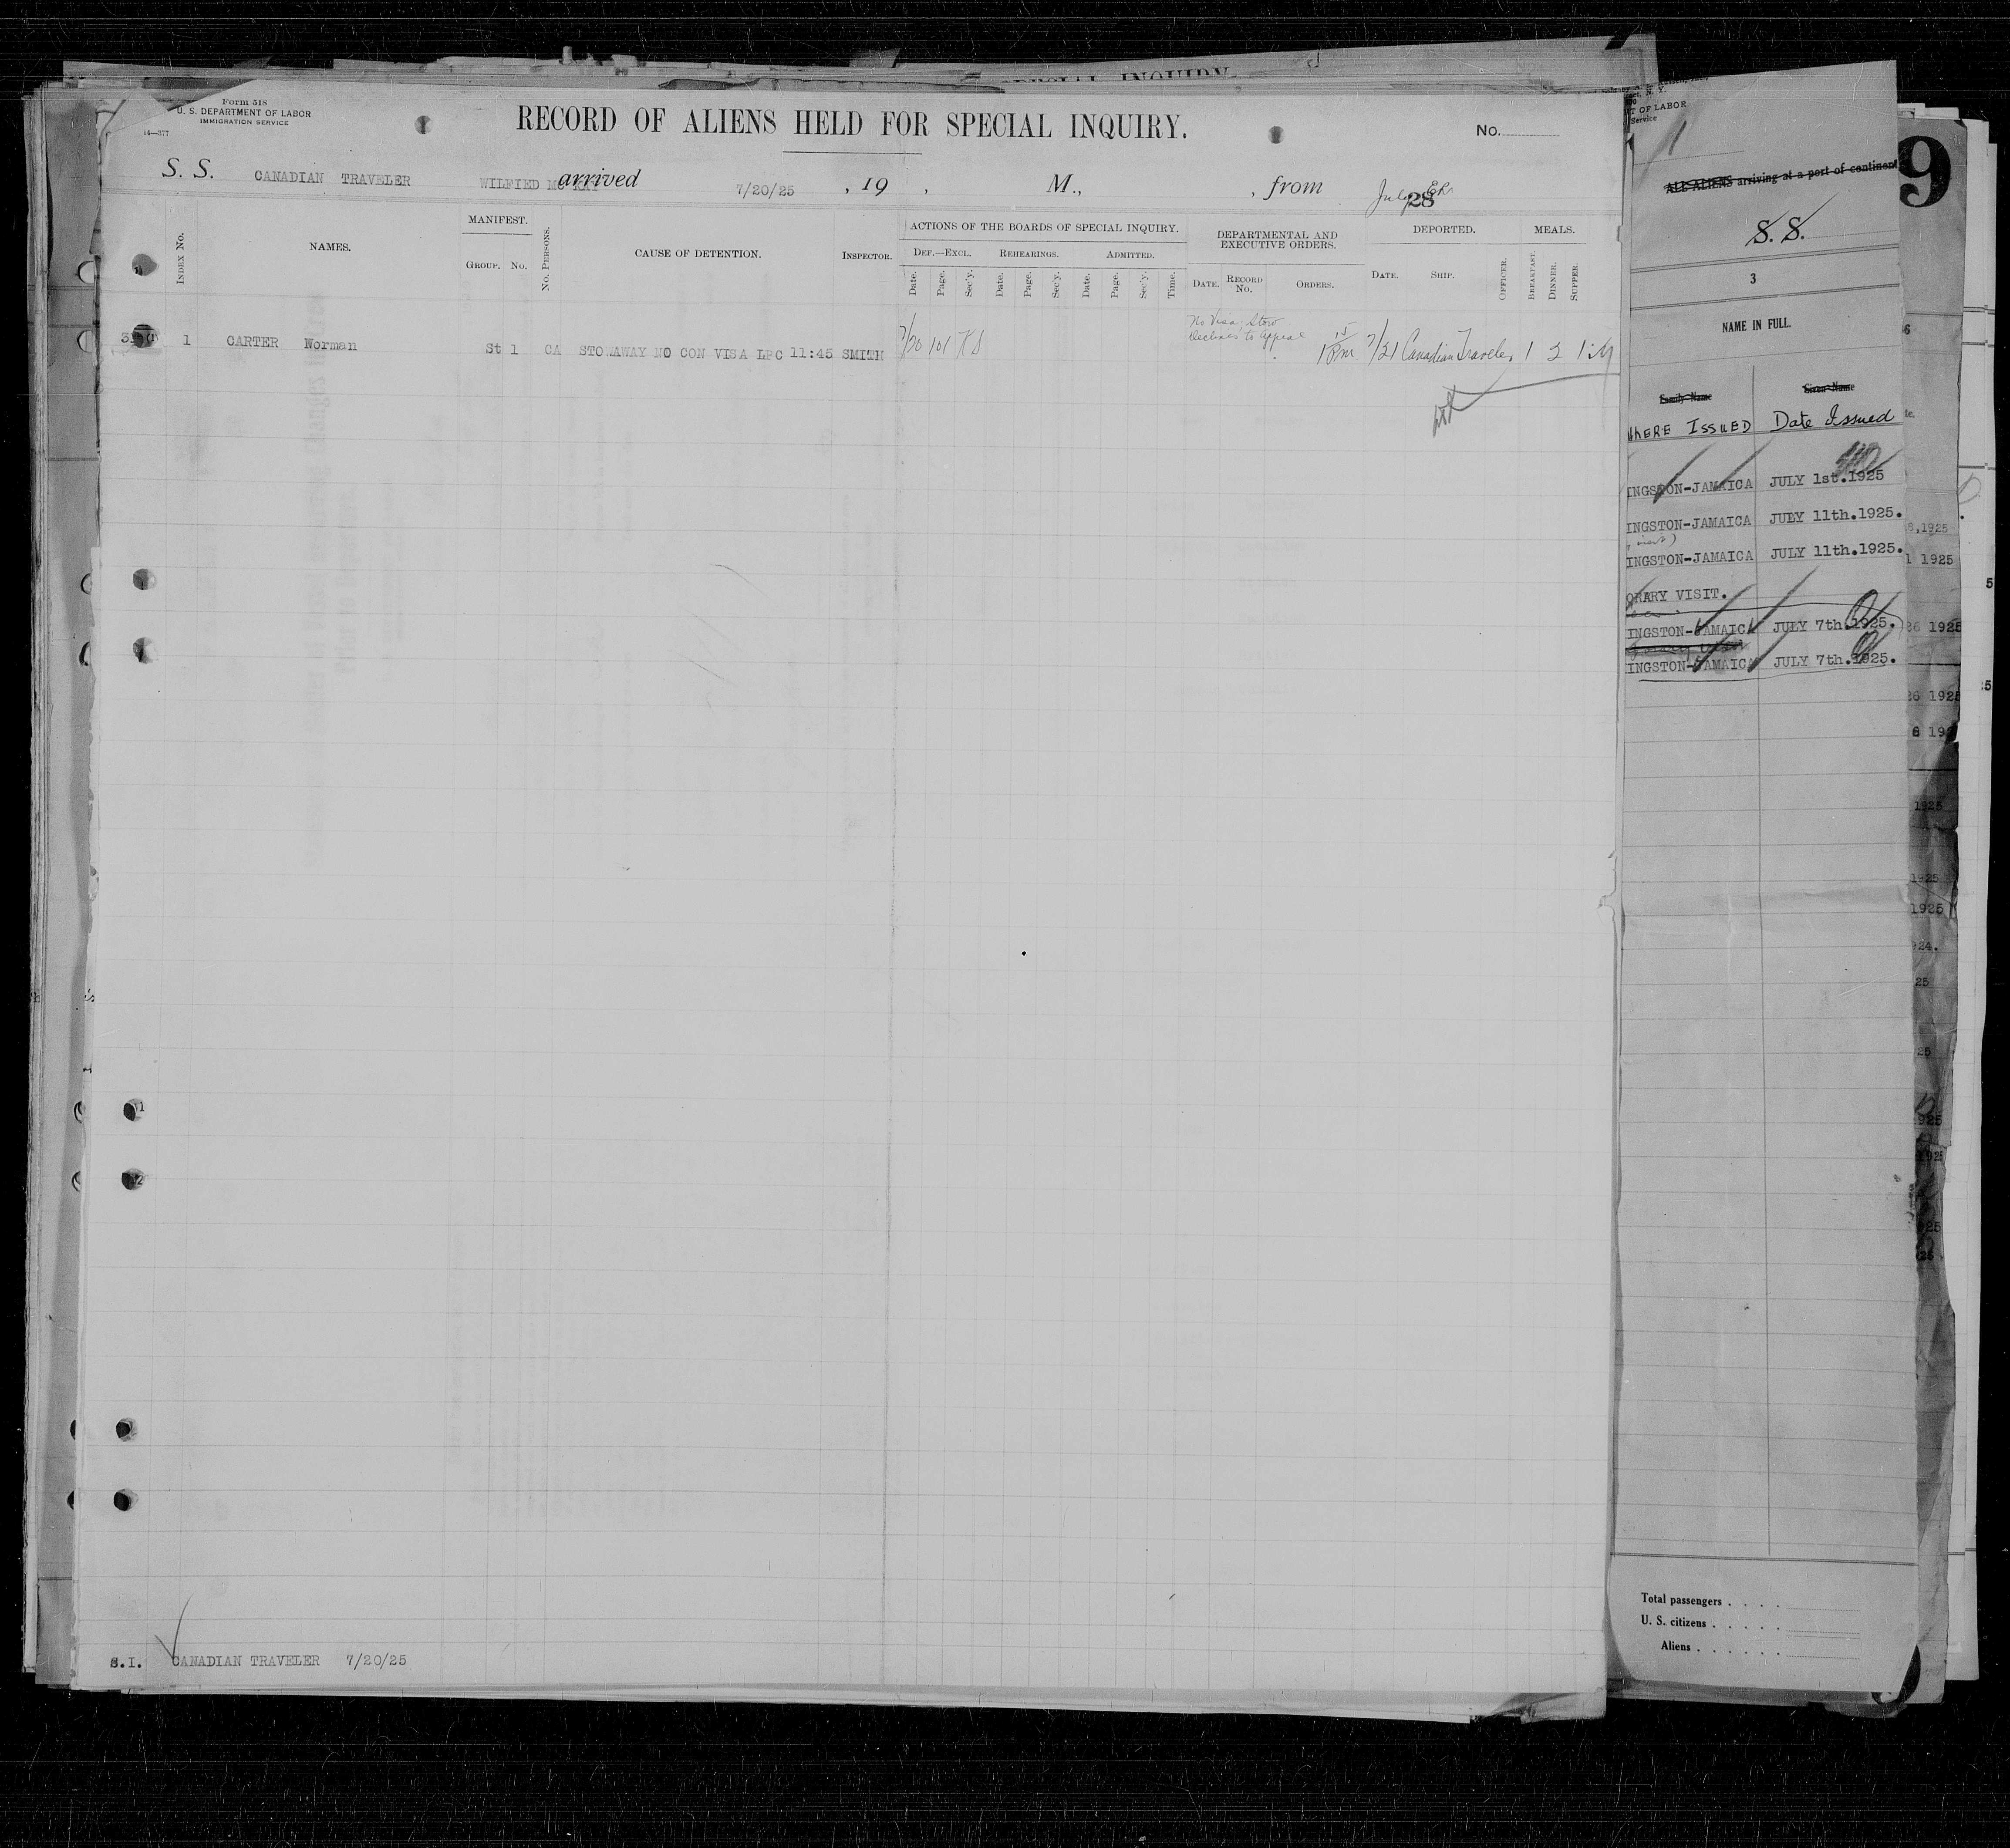 SPECIAL INQUIRY
Form 518
U. S. DEPARTMENT OF LABOR
IMMIGRATION SERVICE
14—377
RECORD OF ALIENS HELD FOR SPECIAL INQUIRY.
No.
S. S. CANADIAN TRAVELER WILFIED arrived 7/20/25 , 19 , M., , from July 28
INDEX No. NAMES. MANIFEST. GROUP. No. No. PERSONS. CAUSE OF DETENTION. INSPECTOR. ACTIONS OF THE BOARDS OF SPECIAL INQUIRY. DEPARTMENTAL AND EXECUTIVE ORDERS. DEPORTED. MEALS.
DEF.—EXCL. REHEARINGS. ADMITTED.
Date. Page. Sec'y. Date. Page. Sec'y. Date. Page. Sec'y. Time. DATE. RECORD No. ORDERS. DATE. SHIP. OFFICER. BREAKFAST. DINNER. SUPPER.
No Visa. Stow
Declines to appeal
1 CARTER Norman St 1 CA STOWAWAY NO CON VISA LPC 11:45 SMITH 7/20 101 KS 1 15 PM 7/21 Canadian Traveler 1 2 1
S.I. CANADIAN TRAVELER 7/20/25
T OF LABOR
Service
1
ALL ALIENS arriving at a port of continent
S. S.
3
NAME IN FULL.
Family Name Given Name
WHERE ISSUED Date Issued
INGSTON-JAMAICA JULY 1st.1925
INGSTON-JAMAICA JULY 11th.1925.
INGSTON-JAMAICA JULY 11th.1925.
ORARY VISIT.
INGSTON-JAMAICA JULY 7th.1925.
INGSTON-JAMAICA JULY 7th.1925.
Total passengers . . . .
U. S. citizens . . . . .
Aliens . . . . . .
9
8,1925
1 1925
26 1925
26 1925
1925
1925
1925
924.
25
25